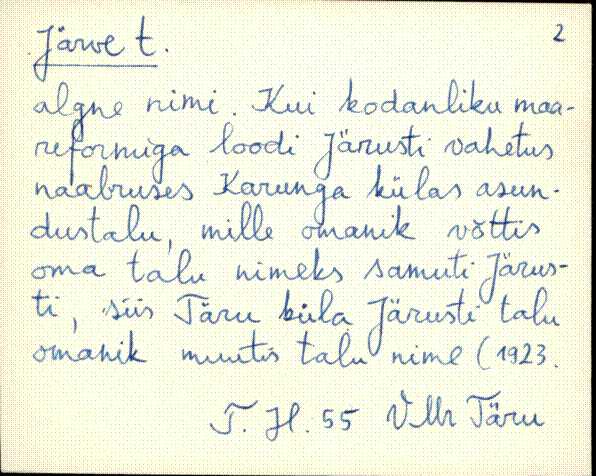 Järve t.
2
algne nimi. Kui kodanliku maa-
reformiga loodi Järusti vahetus
naabruses Karunga külas asun-
dustalu, mille omanik võttis
oma talu nimeks samuti Järus-
ti, siis Täru küla Järusti talu
omanik muutis talu nime (1923.
T. H. 55 VMr Täru